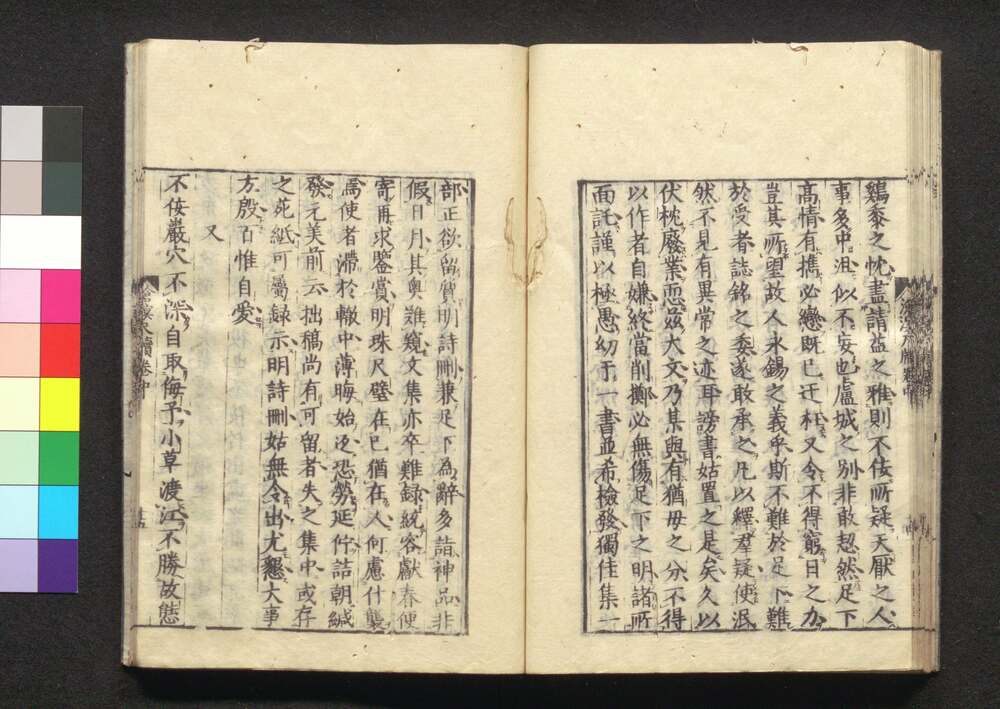 鷄黍之忱盡請益之雅則不佞所疑天厭之人
事多中沮似不安也盧城之別非敢恝然足下
高情有擕必戀既已迂枉又令不得窮日之力
豈其所望故人永錫之義乎斯不難於足下難
於受者誌銘之委遂敢承之凡以繹群疑使泯
然不見有異常之迹耳謗書姑置之是矣久以
伏枕廢業恧兹大文乃某與有猶毋之分不得
以作者自嫌終當削擲必無傷足下之明諸所
面託謹以極愚幼于一書並希檢發獨佳集一
部正欲留質明詩刪兼足下為辭多詣神品非
假日月其奧難窺文集亦卒難録統容獻春便
寄再求鑒賞明珠尺璧在已猶在人何慮什襲
焉使者滯於轍中薄晦始返恐勞延佇詰朝緘
發元美前云拙稿尚有可留者失之集中或存
之苑紙可屬録示明詩刪姑無令出尤懇大事
方殷百惟自愛
又
不佞巖穴不深自取侮予小草渡江不勝故態
滄溟尺牘卷中